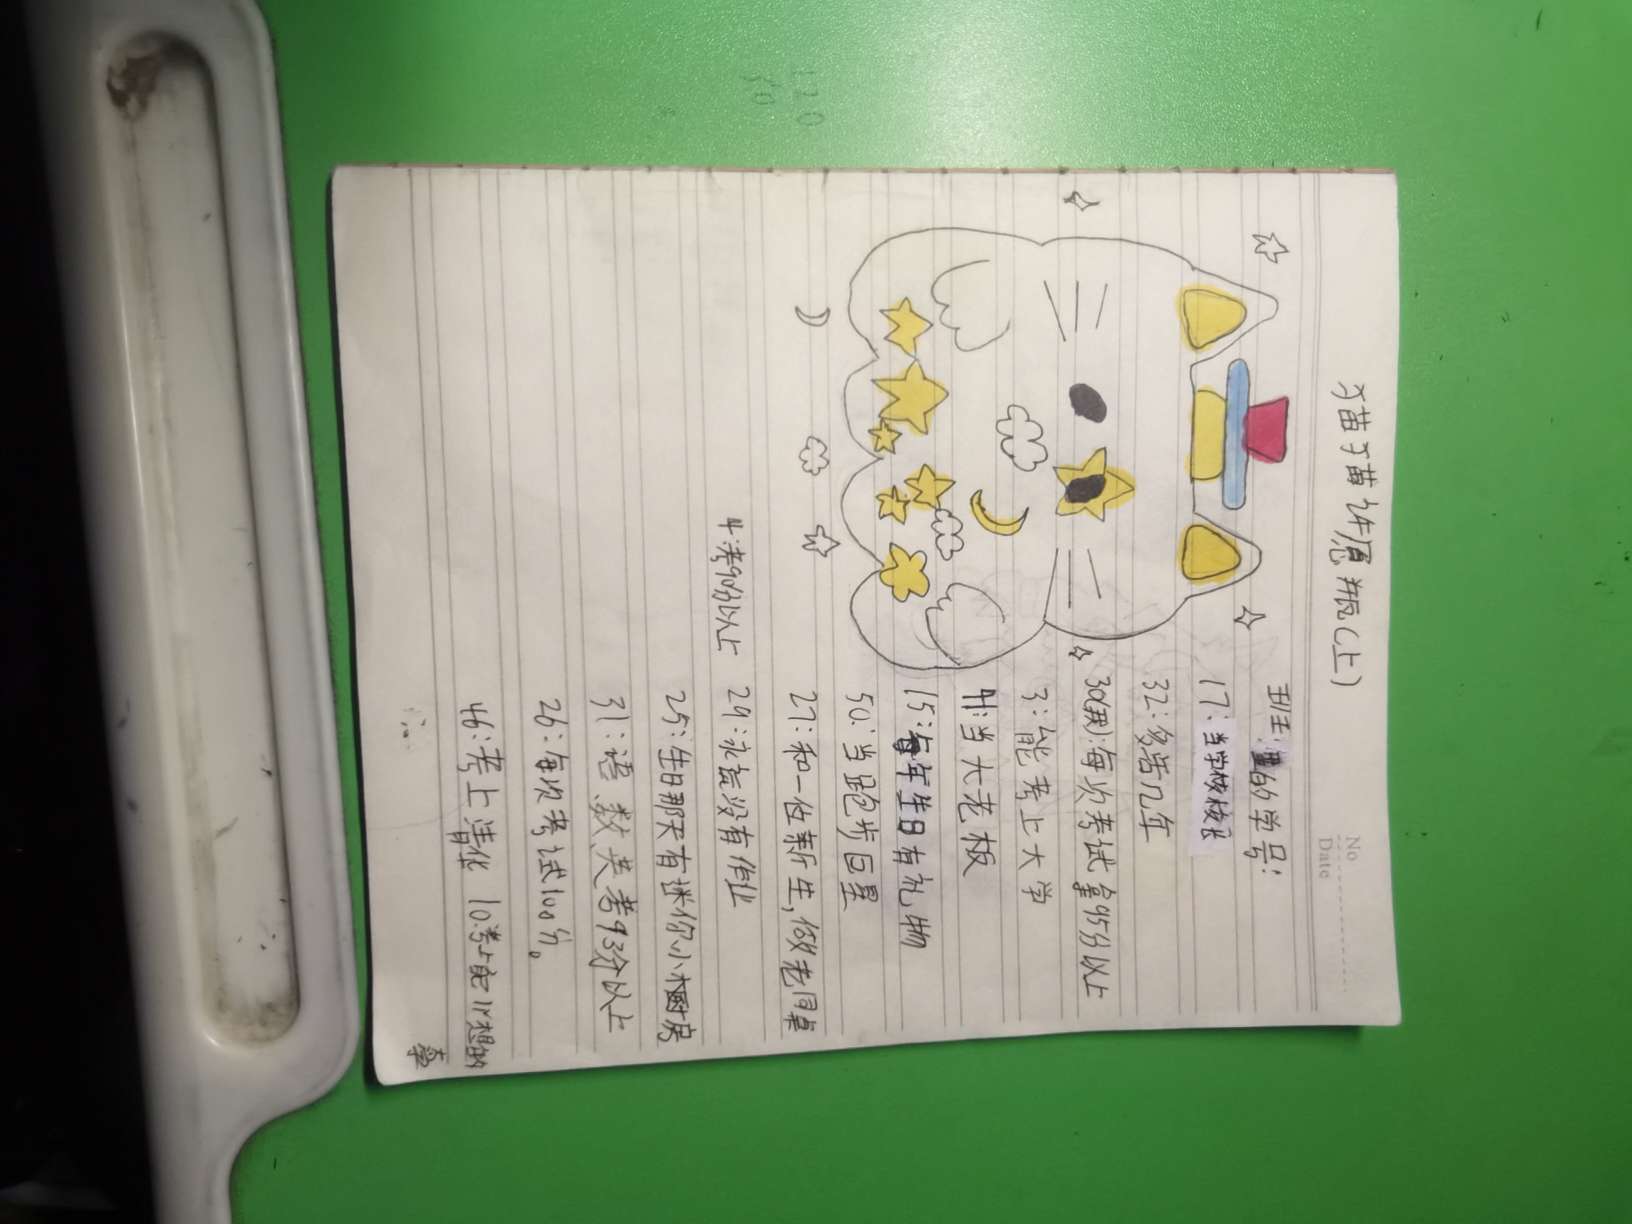 No
Date
猫猫许愿瓶(上)
班主:的学号:
17:当学校校长
32:多活几年
30(我):每次考试拿95分以上
3:能考上大学
41:当大老板
15:每年生日有礼物
50:当跑步巨星
27:和一位新生,做老同桌
4:考90分以上 29:永远没有作业
25:生日那天有迷你小厨房
31:语数英考93分以上
26:每次考试100分。
46:考上清华 10:考上理想的